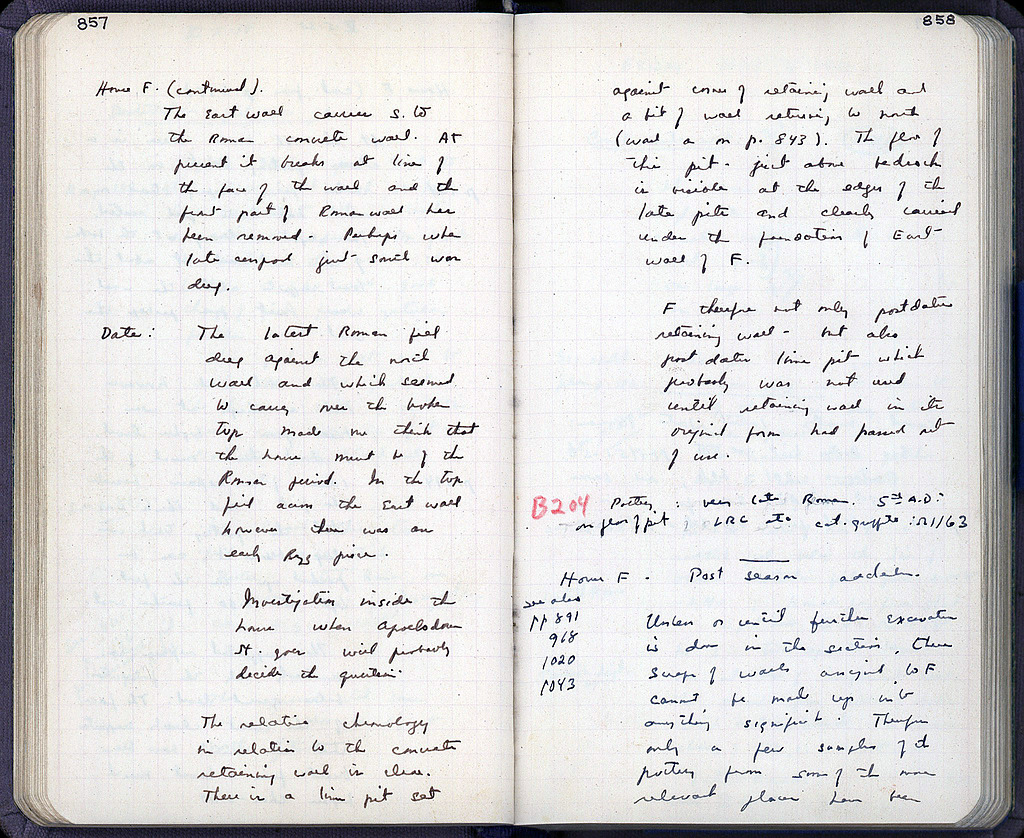 857
House F. (continued).
The East wall carries S. to
the Roman concrete wall. At
present it breaks at line of
the face of the wall and the
first part of Roman wall has
been removed - Perhaps when
late cesspool just south was
dug.
Date: The latest Roman fill
dug against the north
wall and which seemed
to carry over the broken
top made me think that
the house must be of the
Roman period. In the top
fill across the East wall
however there was an
early Byz piece.
Investigation inside the
house when Apostolou
St. goes will probably
decide the question.
The relative chronology
in relation to the concrete
retaining wall is clear.
There is a lime pit set
858
against corner of retaining wall and
a bit of wall returning to north
(wall a on p. 843). The floor of
this pit - just above bedrock
is visible at the edges of the
late pits and clearly carried
under the foundations of East
wall of F.
F therefore not only postdates
retaining wall - but also
post dates lime pit which
probably was not used
until retaining wall in its
original form had passed out
of use.
B204 Pottery : very late Roman. 5th A.D.
on floor of pit ; LRC etc
House F. Post season
see also
pp 891
968
1020
1043
Unless or until further excavation
is done in the section, these
scraps of walls assigned to F
cannot be made up into
anything significant. Therefore
only a few samples of the
pottery from some of the more
relevant places have been